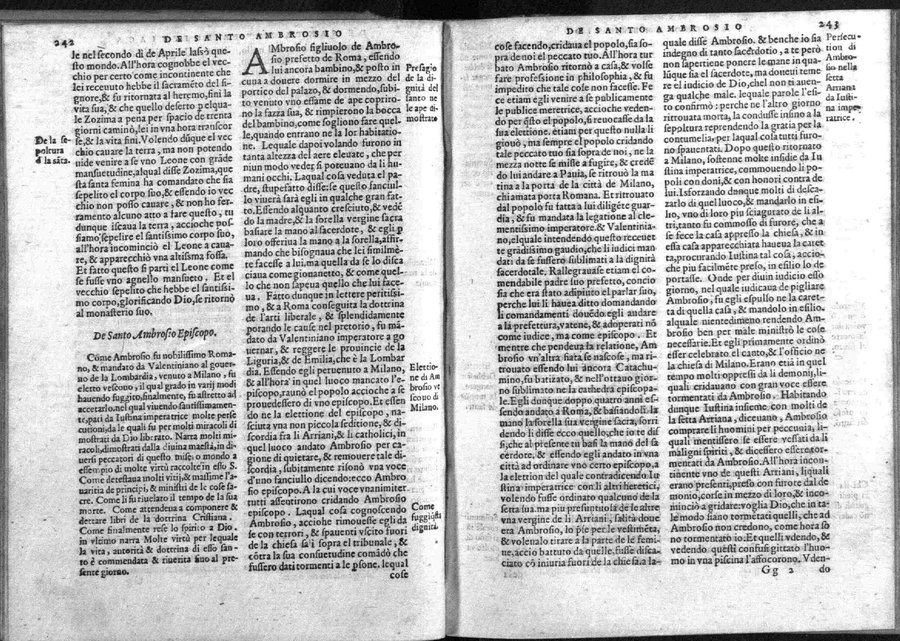 242
DE SANTO AMBROSIO
le nel secondo dì de Aprile lassò que-
sto mondo. All'hora cognobbe el vec-
chio per certo come incontinente che
lei receuuto hebbe il sacramẽto del si-
gnore, & fu ritornata al heremo, finì la
vita sua, & che quello deserto p elqua-
le Zozima a pena per spacio de trenta
giorni caminò, lei in vna hora transcor
se, & la vita finì. Volendo dũque el vec-
chio cauare la terra, ma non potendo
uide venire a se vno Leone con grãde
mansuetudine, alqual disse Zozima, que
sta santa femina ha comandato che sia
sepelito el corpo suo, & essendo io vec
chio non posso cauare, & non ho fer-
ramento alcuno atto a fare questo, tu
dunque iscaua la terra, accioche possia
mo sepelire el santissimo corpo suo,
all'hora incominciò el Leone a caua-
re, & apparecchiò vna altissima fossa.
Et fatto questo si partì el Leone come
se fusse vno agnello mansueto. Et el
vecchio sepelito che hebbe el santissi-
mo corpo, glorificando Dio, se ritornò
al monasterio suo.
De la se-
poltura
d la sãta.
De Santo Ambrosio Episcopo.
Cõme Ambrosio fu nobilissimo Roma-
no, & mandato da Valentiniano al gouer-
no de la Lombardia, venuto a Milano, fu
eletto vescouo, il qual grado in varij modi
hauendo fuggito, finalmente, fu astretto ad
accettarlo, nel qual viuendo santissimamen-
te, patì da Iustina imperatrice molte perse
cutioni, da le quali fu per molti miracoli di
mostrati da Dio librato. Narra molti mi-
racoli, dimostrati dalla diuina maestà, in di-
uersi peccatori di questo misero mondo a
essempio di molte virtù raccolte in esso S.
Come detestaua molti vitij, & massime l'a-
uaritia de principi, & ministri de le cose sa-
cre. Come li fu riuelato il tempo de la sua
morte. Come attendeua a componere &
dettare libri de la dottrina Cristiana.
Come finalmente rese lo spirito a Dio.
in vltimo narra Molte virtù per lequale
la vita, autorità & dottrina di esso san-
to è commendata & riuerita fino al pre-
sente giorno.
AMbrosio figliuolo de Ambro-
sio prefetto de Roma, essendo
lui ancora bambino, & posto in
cuna a douere dormire in mezzo del
portico del palazo, & dormendo, subi-
to venuto vno essame de ape coprino-
no la fazza sua, & rimpirono la bocca
del bambino, come sogliono fare quel-
le, quando entrano ne la lor habitatio-
ne. Lequale dapoi volando furono in
tanta altezza del aere eleuate, che per
niun modo veder si poteuano da li hu-
mani occhi. Laqual cosa veduta el pa-
dre, stupefatto disse: se questo fanciul-
lo viuerà sarà egli in qualche gran fat-
to. Essendo alquanto cresciuto, & vedẽ
do la madre, & la sorella vergine sacra
basiare la mano al sacerdote, & egli p
loro offeriua la mano a la sorella, affir-
mando che bisognaua che lei similmẽ-
te facesse a lui. ma quella da se lo disca
ciaua come giouanetto, & come quel-
lo che non sapeua quello che lui face-
ua. Fatto dunque in lettere peritissi-
mo, & a Roma conseguita la dottrina
de l'arti liberale, & splendidamente
porando le cause nel pretorio, fu mã-
dato da Valentiniano imperatore a go
uernar, & reggere le prouincie de la
Liguria, & de Emilia, che è la Lombar
dia. Essendo egli peruenuto a Milano,
& all'hora in quel luoco mancato l'e-
piscopo, raunò el popolo accioche a se
prouedessero di vno episcopo. Et essen
do ne la elettione del episcopo, na-
sciuta vna non piccola seditione, & di-
scordia fra li Arriani, & li catholici, in
quel luoco andato Ambrosio per ca-
gione di quietare, & remouere tale di-
scordia, subitamente risonò vna voce
d'uno fanciullo dicendo: ecco Ambro
sio episcopo. A la cui voce vnanimiter
tutti assentirono cridando Ambrosio
episcopo. Laqual cosa cognoscendo
Ambrosio, accioche rimouesse egli da
se con terrori, & spauenti vscito fuori
de la chiesa saì sopra el tribunale, &
cõtra la sua consuetudine comãdò che
fussero dati tormenti a le psone. lequal
cose
Presagio
de la di-
gnità del
santo ne
le ape di-
mostrato
Elettio-
ne di Am
brosio ve
scouo di
Milano.
Come
fuggì la
dignità.
DE SANTO AMBROSIO
243
cose facendo, cridaua el popolo, sia so-
pra de noi el peccato tuo. All'hora tur
bato Ambrosio ritornò a casa, & volse
fare professione in philosophia, & fu
impedito che tale cose non facesse. Fe
ce etiam egli venire a se publicamente
le publice meretrice, accioche veden-
do per q̃sto el popolo, si reuocasse da la
sua elettione. etiam per questo nulla li
giouò, ma sempre el popolo cridando
tale peccato tuo sia sopra de noi, ne la
mezza notte se misse a fugire, & credẽ
do lui andare a Pauia, se ritrouò la ma
tina a la porta de la città de Milano,
chiamata porta Romana. Et ritrouato
dal popolo fu fatta a lui diligẽte guar-
dia, & fu mandata la legatione al cle-
mentissimo imperatore. & Valentinia-
no, elquale intendendo questo receuet
te grãdissimo gaudio, che li iudici man
dati da se fussero sublimati a la dignità
sacerdotale. Rallegrauase etiam el co-
mendabile padre suo prefetto, concio
sia che era stato adipiuto el parlar suo,
perche lui li haueua ditto domandando
li comandamenti douẽdo egli andare
a la prefettura, vatene, & adoperati nõ
come iudice, ma come episcopo. Et
mentre che pendeua la relatione, Am
brosio vn'altra fiata se nascose, ma ri-
trouato essendo lui ãncora Catachu-
mino, fu batizato, & nell'ottauo gior-
no sublimato ne la cathedra episcopa-
le. Egli dunque doppo quatro anni es-
sendo andato a Roma, & basandoli la
mano la sorella sua vergine sacra, sorri
dendo li disse ecco quello, che io te dis
si, che al presente tu basi la mano del sa
cerdote, & essendo egli andato in vna
città ad ordinare vno certo episcopo, a
la elettion del quale contradicendo Iu
stina imperatrice con li altri heretici,
volendo fusse ordinato qualcuno de la
setta sua. ma piu presuntuosa de le altre
vna vergine de li Arriani, salita doue
era Ambrosio, lo p̃se per le vestimẽta,
& volenalo titare a la parte de le femi-
ne, accio battuto da quelle, fusse disca-
ciato cõ iniuria fuori de la chiesa. a la
quale disse Ambrosio. & benche io sia
indegno di tanto sacerdotio, a te però
non sapertiene ponere le mane in qua-
lũque sia el sacerdote, ma doueui teme
re el iudicio de Dio, chel non ti auen-
ga qualche male. lequale parole l'esi-
to confirmò: perche ne l'altro giorno
ritrouata morta, la condusse insino a la
sepoltura reprendendo la gratia per la
contumelia: per laqual cosa tutti furo-
no spauentati. Dopo questo ritornato
a Milano, sostenne molte insidie da Iu
stina imperatrice, commouendo li po-
poli con doni, & con honori contra de
lui. Isforzando dunque molti di desca-
zarlo di quel luoco, & mandarlo in esi-
lio, vno di loro piu sciagurato de li al-
tri, tanto fu commosso di furore, che a
se fece la casa appresso la chiesa, & in
essa casa apparecchiata haueua la caret
ta, procurando Iustina tal cosa, accio-
che piu facilmẽte preso, in esilio lo de-
portasse. Onde per diuin iudicio esso
giorno, nel quale iudicaua de pigliare
Ambrosio, fu egli espulso ne la caret-
ta di quella casa, & mandolo in esilio.
alquale nientedimeno rendendo Am-
brosio ben per male ministrò le cose
necessarie. Et egli primamente ordinò
esser celebrato el canto, & l'officio ne
la chiesa di Milano. Erano etiã in quel
tempo molti oppressi da li demonij, li-
quali cridauano con gran voce essere
tormentati da Ambrosio. Habitando
dunque Iustina insieme con molti de
la setta Arriana, diceuano, Ambrosio
comprare li huomini per peccunia, li-
quali mentissero se essere vessati da li
maligni spiriti, & dicessero essere tor-
mentati da Ambrosio. All'hora incon-
tinente vno de questi Arriani, li quali
erano presenti, preso con furore dal de
monio, corse in mezzo di loro, & inco-
minciò a gridare: voglia Dio, che in ta
le modo siano tormentati quelli, che ad
Ambrosio non credono, come hora so
no tormentato io. Et quelli vdendo, &
vedendo questi confusi gittato l'huo-
mo in vna piscina l'affocorono. Vden-
Gg 2
do
Persecu-
tion di
Ambro-
sio nella
setta
Arriana
da Iusti-
na impe-
ratrice.